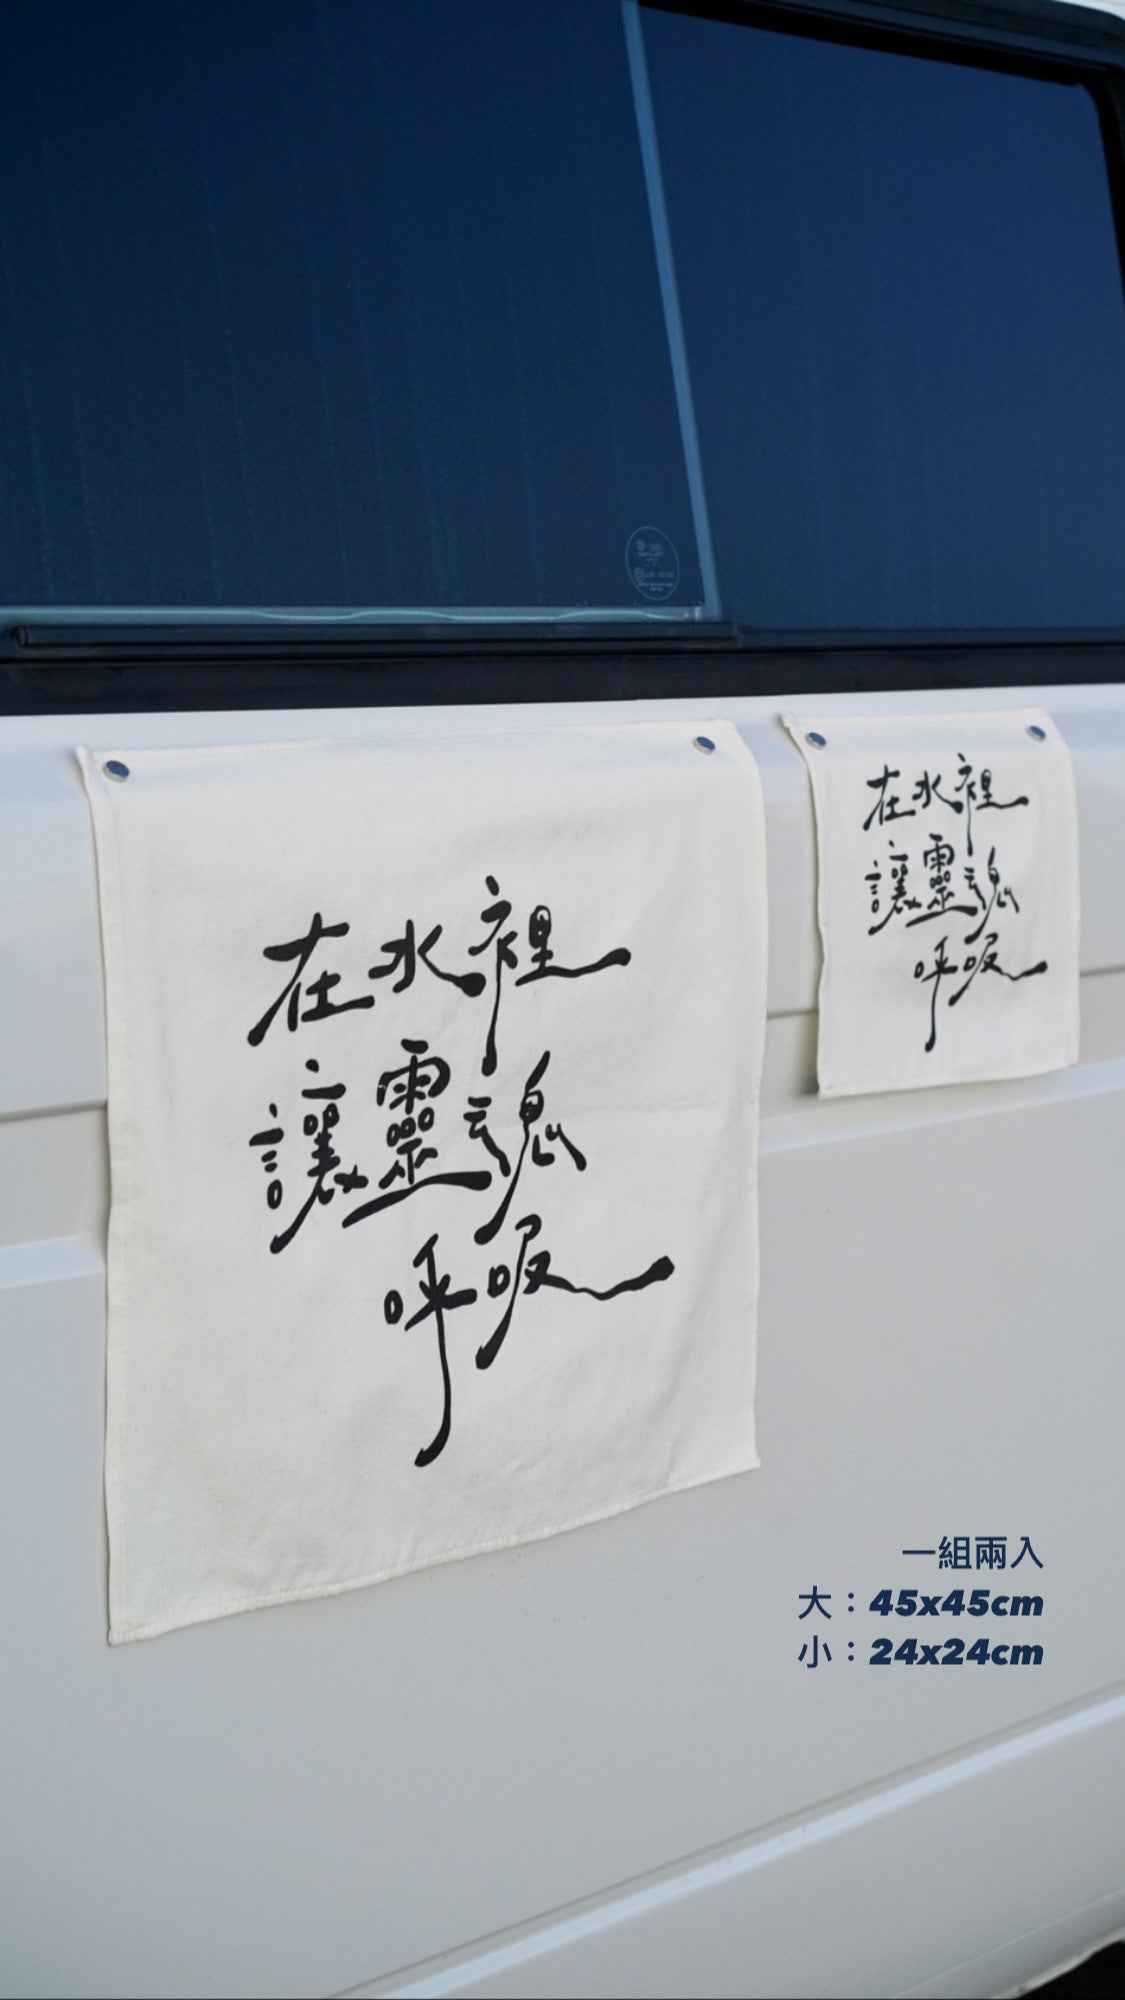 在水裡
讓靈魂
呼吸
在水裡
讓靈魂
呼吸
一組兩入
大：45x45cm
小：24x24cm